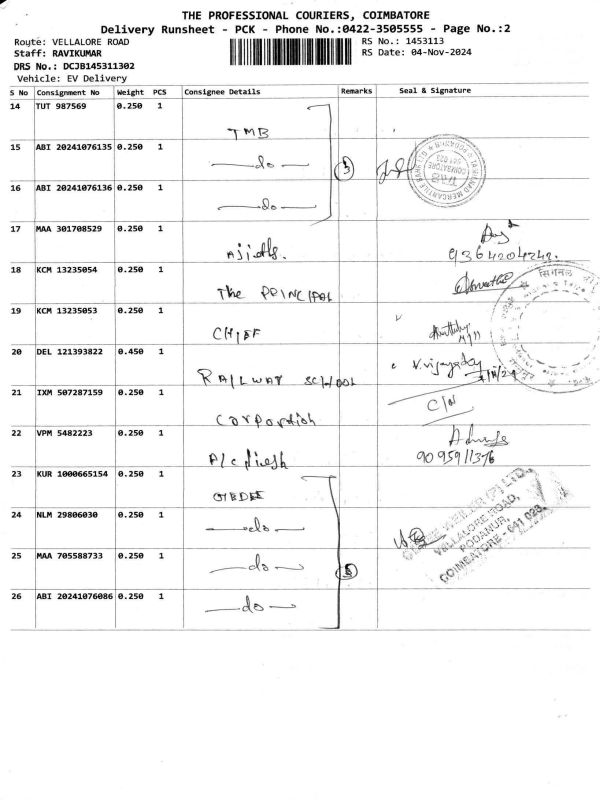 THE PROFESSIONAL COURIERS, COIMBATORE
Delivery Runsheet - PCK - Phone No.:0422-3505555 - Page No.:2
Route: VELLALORE ROAD
RS No.: 1453113
Staff: RAVIKUMAR
RS Date: 04-Nov-2024
DRS No.: DCJB145311302
Vehicle: EV Delivery
S No Consignment No Weight PCS Consignee Details Remarks Seal & Signature
14 TUT 987569 0.250 1 TMB
15 ABI 20241076135 0.250 1 -do- 3
16 ABI 20241076136 0.250 1 -do-
17 MAA 301708529 0.250 1 9364204242.
18 KCM 13235054 0.250 1 The PRINCIPAL
19 KCM 13235053 0.250 1 CHIEF
20 DEL 121393822 0.450 1 RAILWAY SCHOOL
21 IXM 507287159 0.250 1 Corporation C/N
22 VPM 5482223 0.250 1 9095911376
23 KUR 1000665154 0.250 1
24 NLM 29806030 0.250 1 -do-
25 MAA 705588733 0.250 1 -do-
26 ABI 20241076086 0.250 1 -do-
VELLALORE ROAD,
PODANUR,
COIMBATORE - 641 023.